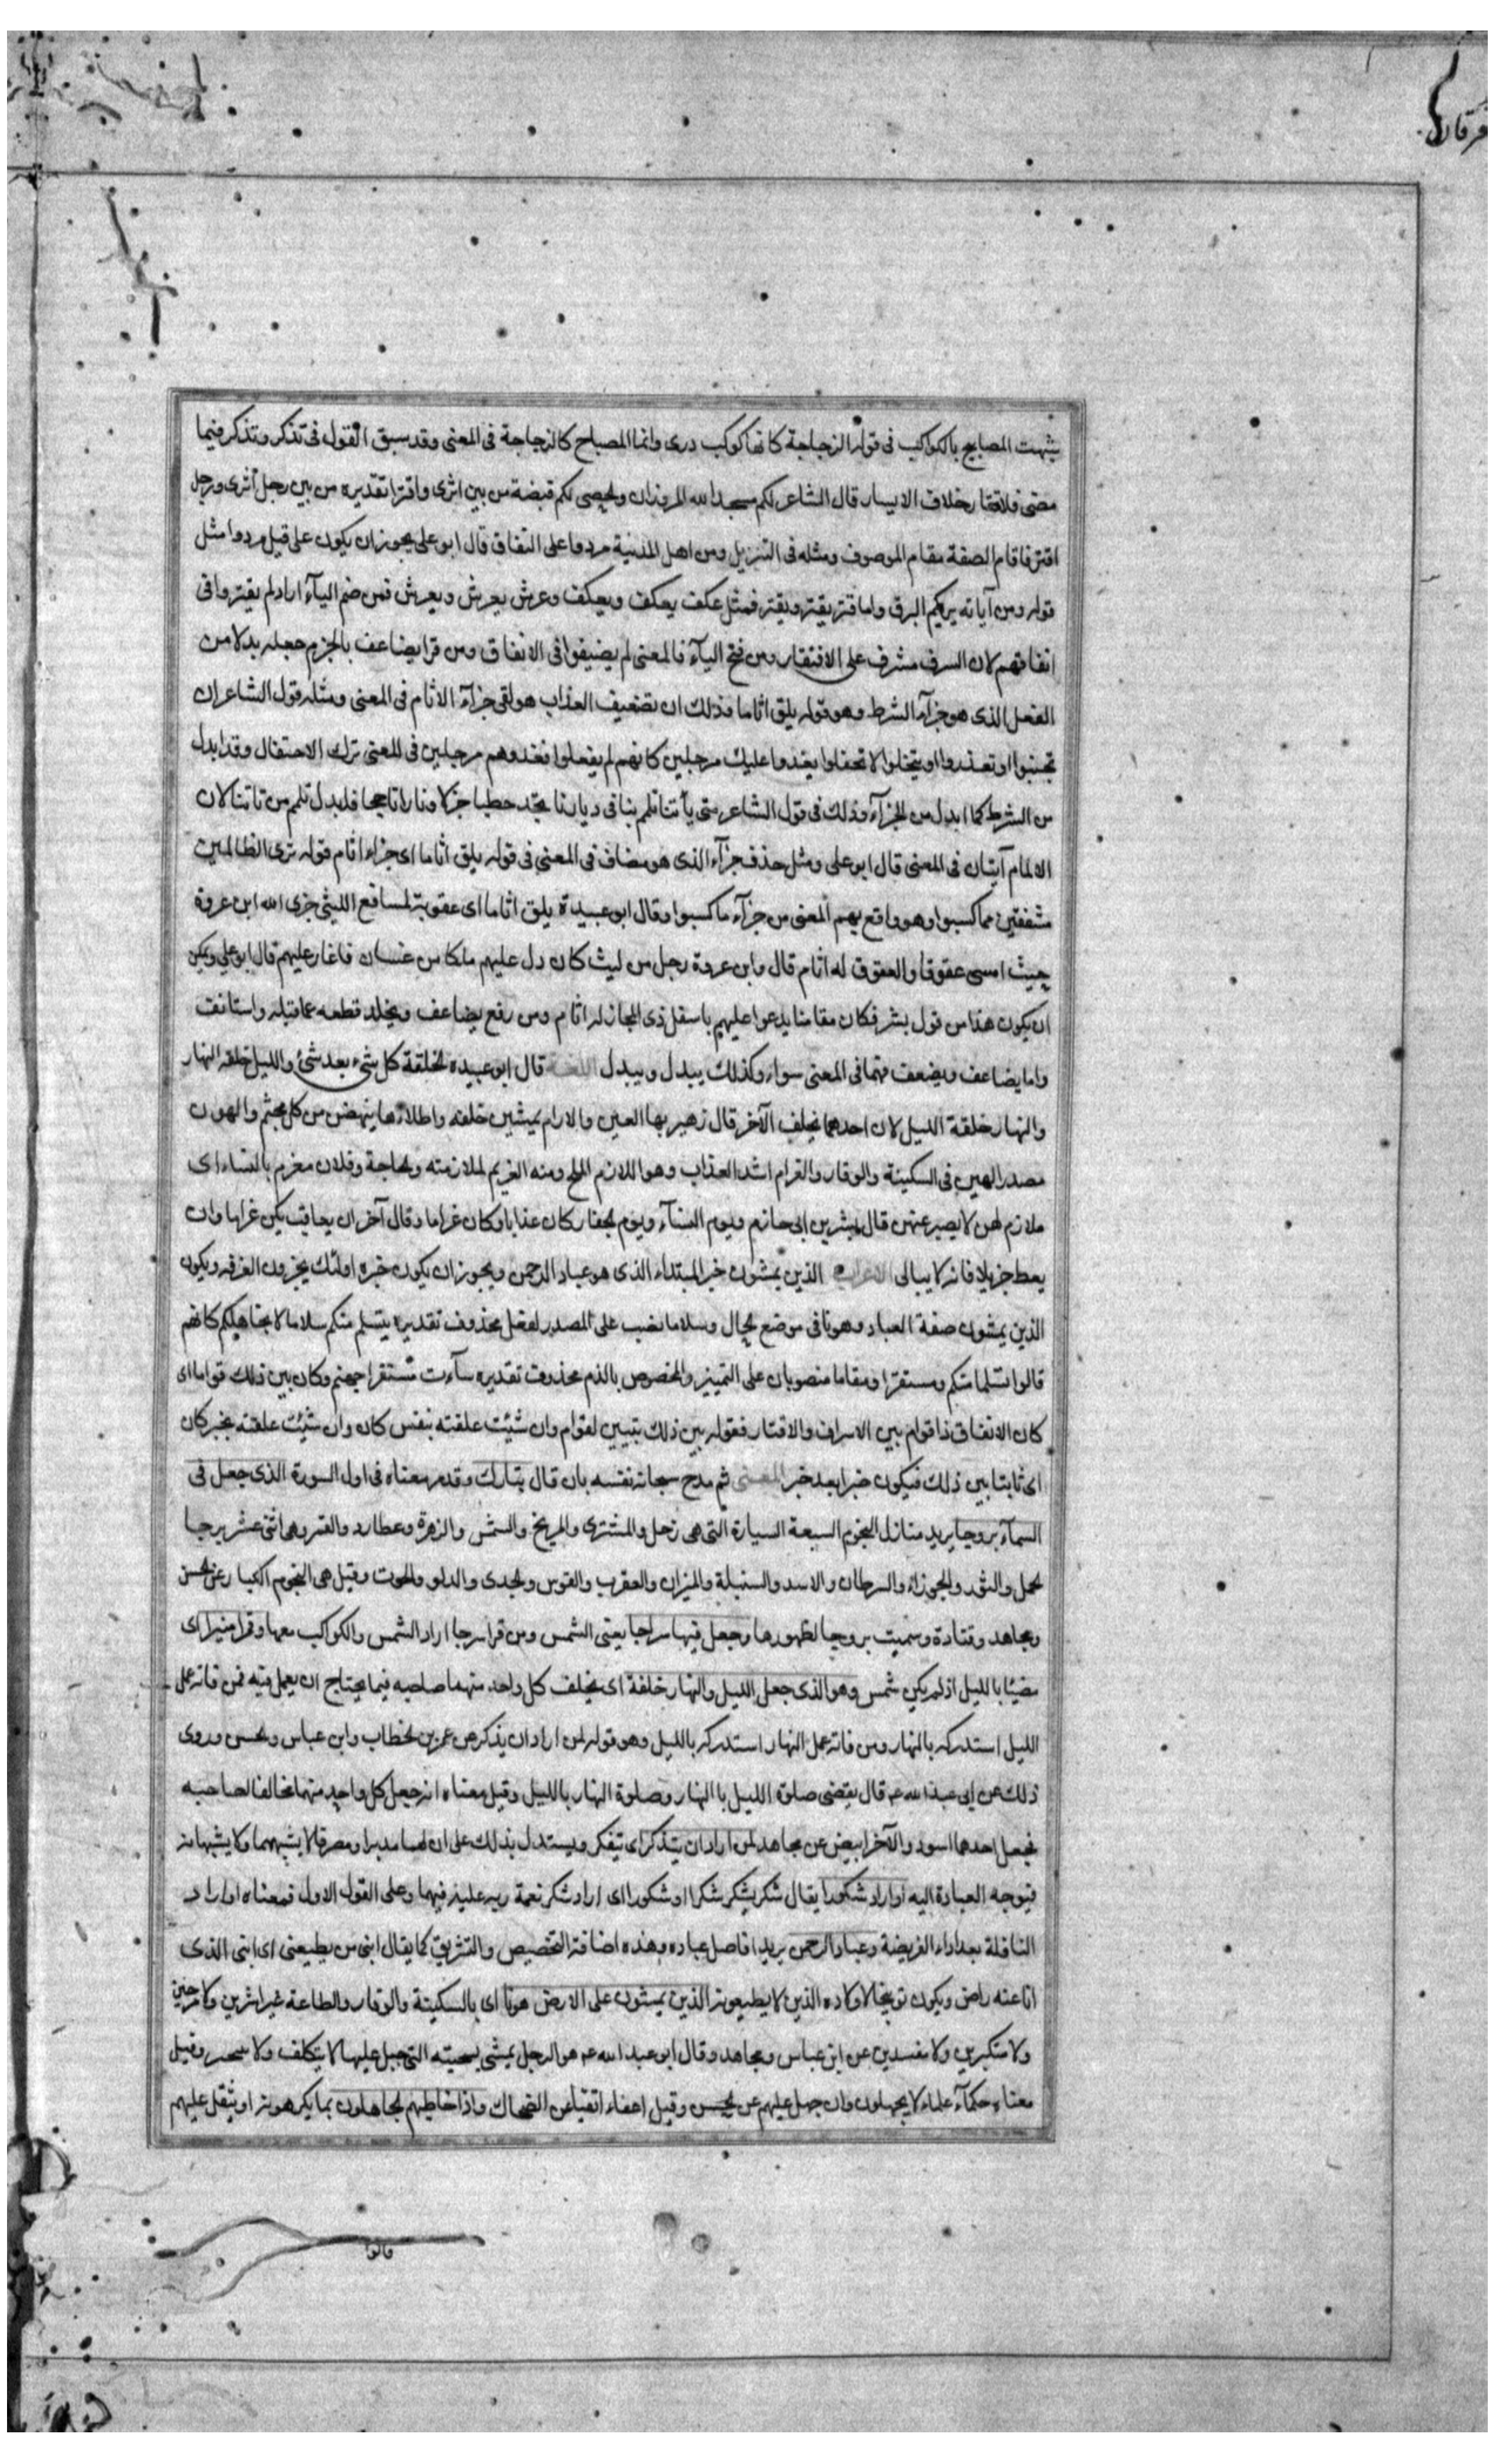 فرقان
شبهت المصابيح بالكواكب فى قوله الزجاجة كانها كوكب درى وانما المصباح كالزجاجة فى المعنى وقد سبق القول فى تذكر وتذكر فيما
مضى فلاقتار خلاف الايسار قال الشاعر لكم مسجد الله المزوران والحصى لكم قبضة من بين اثرى واقترا تقديره من بين رجل اثرى ورجل
اقتر فاقام الصفة مقام الموصوف ومثله فى التنزيل ومن اهل المدنية مردوا على النفاق قال ابو على يجوز ان يكون على قبل مردوا مثل
قوله ومن آياته يريكم البرق واما قتر يقتر ويقتر فمثل عكف يعكف ويعكف وعرش يعرش ويعرش فمن ضم اليآء اراد لم يقتروا فى
انفاقهم لان السرف مشرف على الافتقار ومن فتح اليآء فالمعنى لم يضيقوا فى الانفاق ومن قرا يضاعف بالجزم جعله بدلا من
الفعل الذى هو جزآء الشرط وهو قوله يلق اثاما وذلك ان تضعيف العذاب هو لقى جزآء الاثام فى المعنى ومثله قول الشاعر ان
تجبنوا او تعذروا او يبخلوا لا تحفلوا يغدوا عليك مرجلين كانهم لم يفعلوا فغدوهم مرجلين فى المعنى ترك الاحتفال وقد ابدل
من الشرط كما ابدل من الجزآء وذلك فى قول الشاعر متى يأتنا تلم بنا فى ديارنا تجد حطبا جزلا ونارا تاججا فابدل تلم من تاتنا لان
الالمام آيتان فى المعنى قال ابو على ومثل حذف جزآء الذى هو مضاف فى المعنى فى قوله يلق اثاما اى جزاء اثام قوله ترى الظالمين
مشفقين مما كسبوا وهو واقع بهم المعنى من جزآء ما كسبوا وقال ابو عبيدة يلق اثاما اى عقوبة لمسافع الليثى جزى الله ابن عروة
حيث امسى عقوقا والعقوق له اثام قال وابن عروة رجل من ليث كان دل عليهم ملكا من غسان فاغار عليهم قال ابو على ويمكن
ان يكون هذا من قول بشر فكان مقامنا يدعوا عليهم باسفل ذى المجاز له اثام ومن رفع يضاعف ويخلد قطعه مما قبله واستانفت
واما يضاعف ويضعف فهما فى المعنى سواء وكذلك يبدل ويبدل اللغة قال ابو عبيده الخلقة كل شىء بعد شئ والليل خلفه النهار
والنهار خلقة الليل لان احدهما يخلف الآخر قال زهير بها العين والارام يمشين خلفه واطلاؤها ينهضن من كل مجثم والهون
مصدر الهين فى السكينة والوقار والغرام اشد العذاب وهو اللازم الملح ومنه الغريم لملازمته والحاجة وفلان مغرم بالنساء اى
ملازم لهن لا يصبر عنهن قال بشر بن ابى حازم ويوم النسآء ويوم الجفار كان عذابا وكان غراما وقال آخر ان يعاقب يكن غراما وان
يعط جزيلا فانه لا يبالى الاعراب الذين يمشون خبر المبتداء الذى هو عباد الرحمن ويجوز ان يكون خبره اولئك يجزون الغرفه ويكون
الذين يمشون صفة العباد وهونا فى موضع الحال وسلاما نصب على المصدر لفعل محذوف تقديره يتسلم منكم سلاما لا نجاهلكم كانهم
قالوا تسلما منكم ومستقرا ومقاما منصوبان على التمييز والمخصوص بالذم محذوف تقديره سآءت مستقرا جهنم وكان بين ذلك قواما اى
كان الانفاق ذا قوام بين الاسراف والاقتار فقوله بين ذلك تبيين لقوام وان شئت علقته بنفس كان وان شئت علقته بخبر كان
اى ثابتا بين ذلك فيكون خبرا بعد خبر المعنى ثم مدح سبحانه نفسه بان قال تبارك وقد مر معناه فى اول السورة الذى جعل فى
السمآء بروجا يريد منازل النجوم السبعة السيارة التى هى زحل والمشترى والمريخ والشمس والزهرة وعطارد والقمر وهى اثنى عشر برجا
الحمل والثور والجوزاء والسرطان والاسد والسنبلة والميزان والعقرب والقوس والجدى والدلو والحوت وقيل هى النجوم الكبار عن الحسن
ومجاهد وقتادة وسميت بروجا لظهورها وجعل فيها سراجا يعنى الشمس ومن قرا سرجا اراد الشمس والكواكب معها وقمرا منيرا اى
مضيئا بالليل اذ لم يكن شمس وهو الذى جعل الليل والنهار خلفة اى يخلف كل واحد منهما صاحبه فيما يحتاج ان يعمل فيه فمن فاته عمل
الليل استدركه بالنهار ومن فاته عمل النهار استدركه بالليل وهو قوله لمن اراد ان يذكر عن عمر بن الخطاب وابن عباس والحسن وروى
ذلك عن ابى عبد الله ع قال يقضى صلوة الليل باالنهار وصلوة النهار باالليل وقيل معناه انه جعل كل واحد منهما مخالفا لصاحبه
فجعل احدهما اسود والآخر ابيض عن مجاهد لمن اراد ان يتذكر اى يتفكر ويستدل بذلك على ان لهما مدبرا ومصرفا لا يشبههما ولا يشبهانه
فيوجه العبادة اليه او اراد شكورا يقال شكر يشكر شكرا او شكورا اى اراد شكر نعمة ربه عليه فيهما وعلى القول الاول فمعناه او اراد
النافلة بعد اداء الفريضة وعباد الرحمن يريد افاضل عباده وهذه اضافة التخصيص والتشريف كما يقال ابنى من يطيعنى اى ابنى الذى
انا عنه راض ويكون توبيخا لاولاده الذين لا يطيعونه الذين يمشون على الارض هونا اى بالسكينة والوقار والطاعة غير اشرين ولا مرحين
ولا متكبرين ولا مفسدين عن ابن عباس ومجاهد وقال ابو عبد الله ع هو الرجل يمشى بسجيته التى جبل عليها لا يتكلف ولا وقيل
معناه حكمآء علماء لا يجهلون وان جهل عليهم عن الحسن وقيل اعفاء اتقياء عن الضحاك واذا خاطبهم الجاهلون بما يكرهونه او يثقل عليهم
قالوا